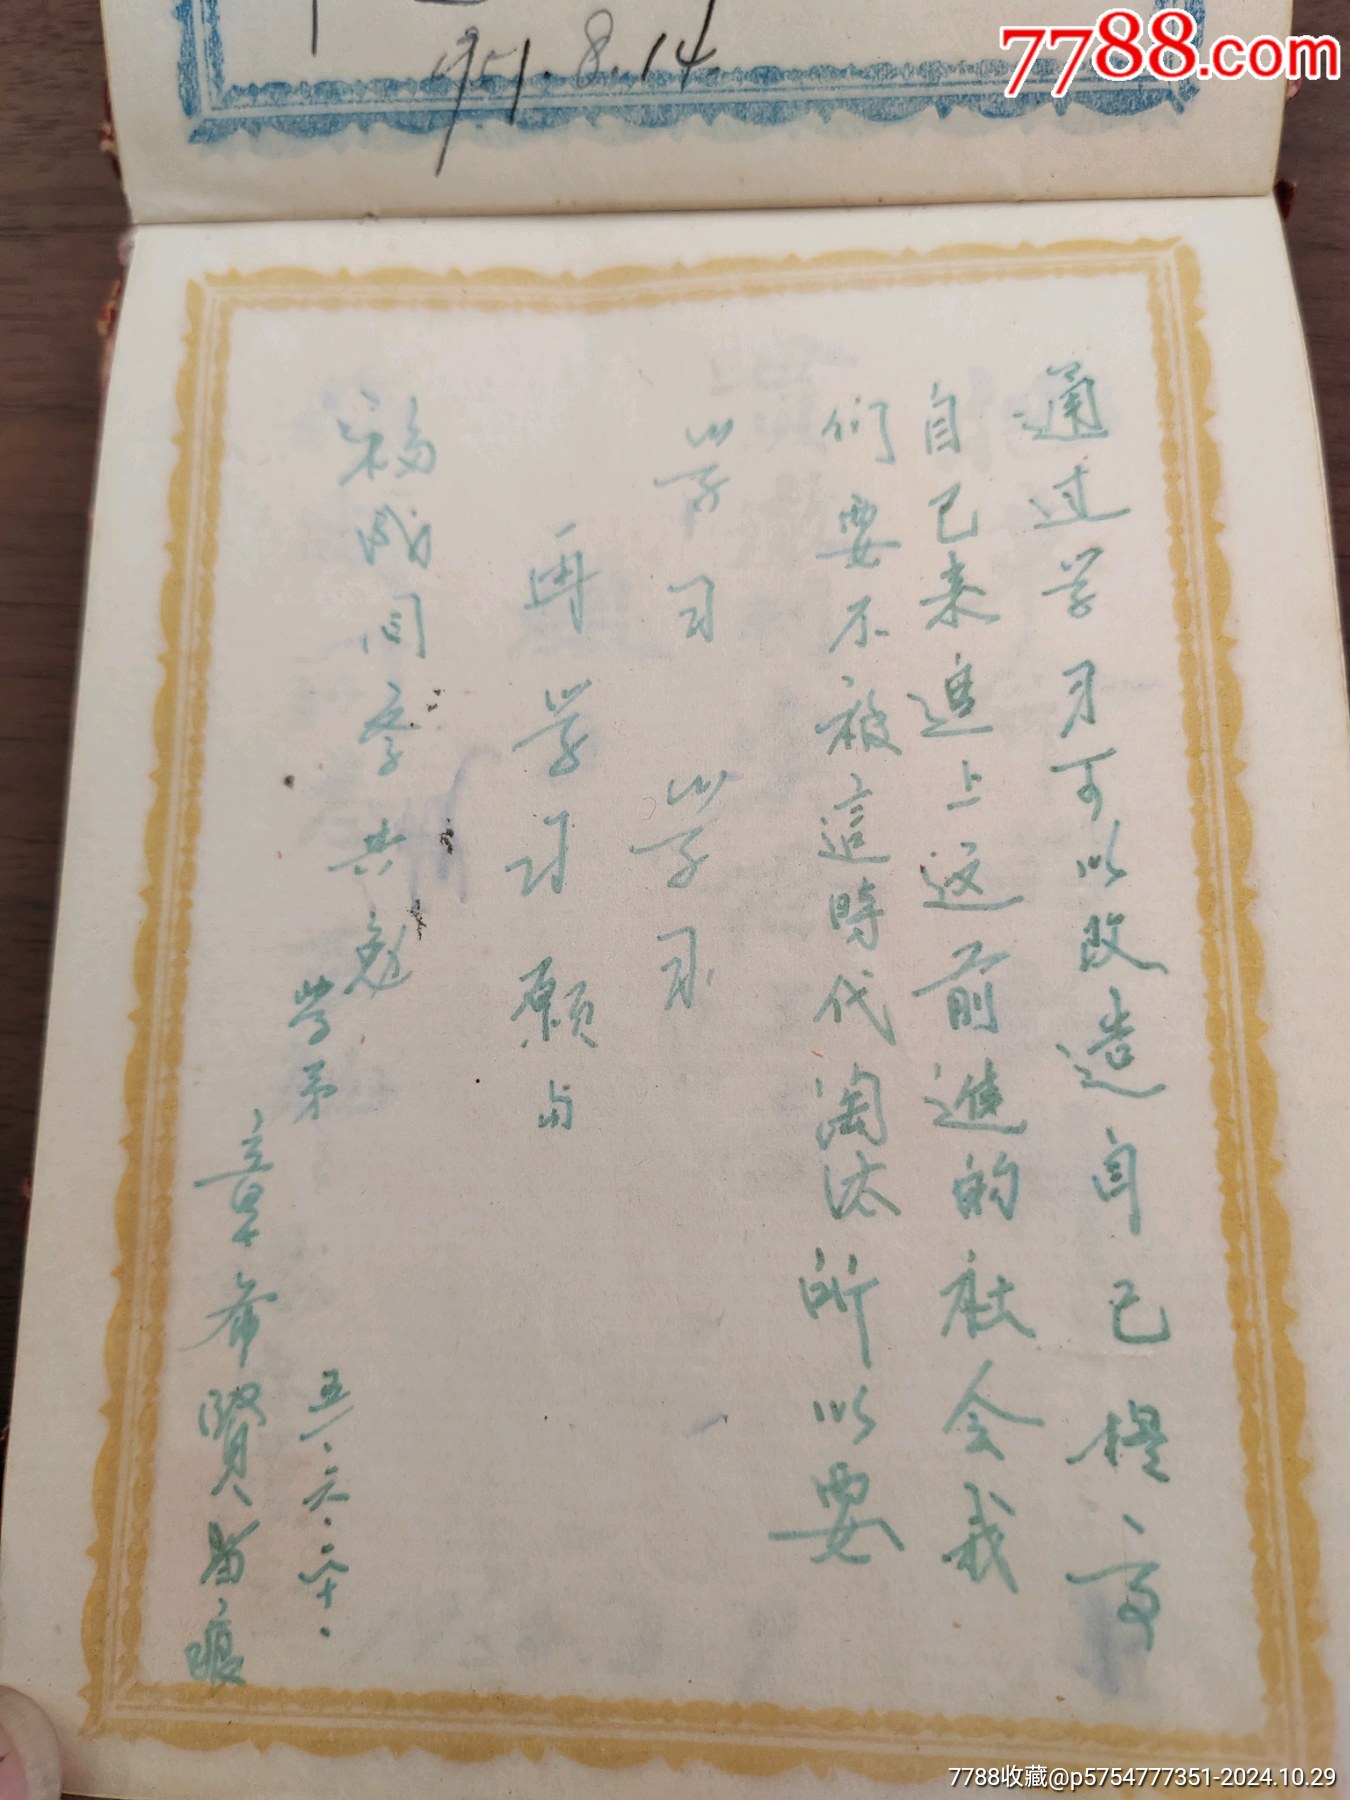 7788.com
1951.8.14
通过学习可以改造自己提高
自己来进上这前進的社会我
们要不被這時代淘汰所以要
学习 学习
再学习願与
福成同学共勉
学弟
章希賢留痕
五一.六.二十.
7788收藏@p5754777351-2024.10.29